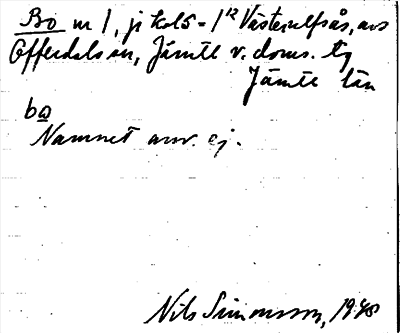 Bo nr 1, jr kol 5 = 1¹² Västerulfsås, avs
Offerdals sn, Jämtl v. doms. tg
Jämtl län
ba
Namnet anv. ej.
Nils Simonsson, 1948